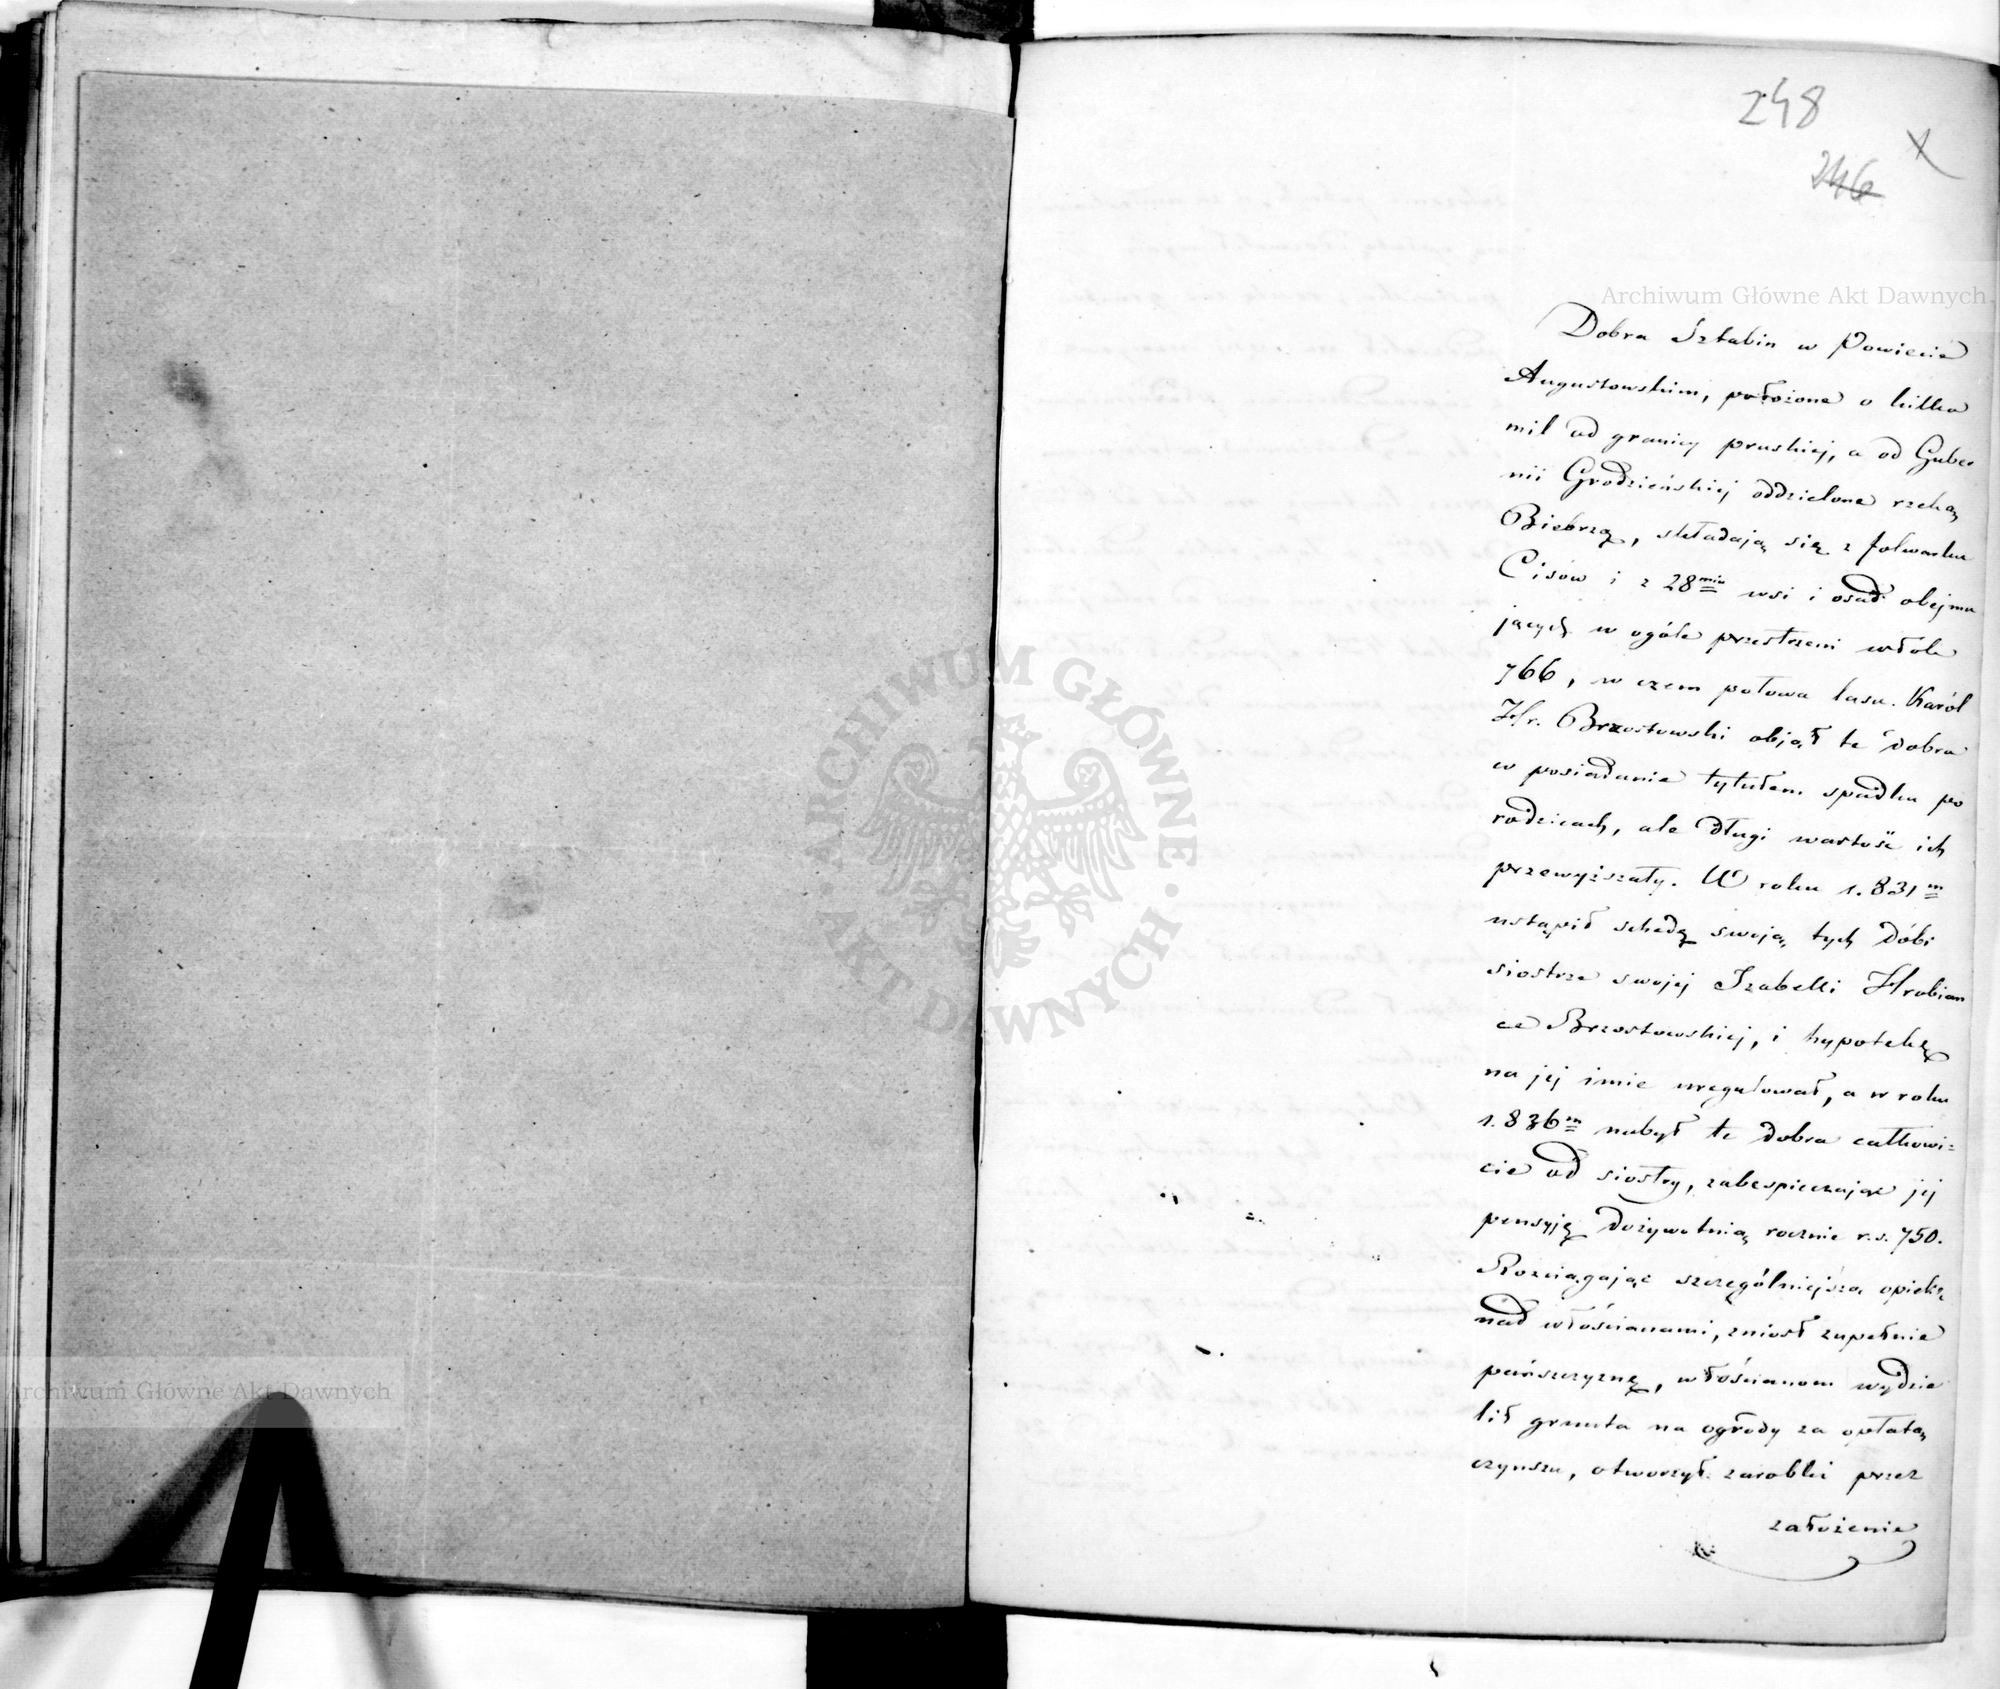 248
246
Archiwum Główne Akt Dawnych
Dobra Sztabin w Powiecie
Augustowskim, położone o kilka
mil od granicy pruskiej, a od Guber
nii Grodzieńskiej oddzielone rzeką
Biebrzą, składają się z folwarku
Cisów i z 28miu wsi i osad obejmu
jących w ogóle przestrzeni włók
766, w czem połowa lasu. Karól
Hr. Brzostowski objął te dobra
w posiadanie tytułem spadku po
rodzicach, ale długi wartość ich
przewyższały. W roku 1.831m
ustąpił schedę swoją tych dóbr
siostrze swojej Izabelli Hrabian
ce Brzostowskiej, i hypotekę
na jej imie uregulował, a w roku
1.836m nabył te dobra całkowi=
cie od siostry, zabespieczając jej
pensyję dożywotnią rocznie r.s. 750.
Rozciągając szczególniejszą opiekę
nad włościanami, zniósł zupełnie
pańszczyznę, włościanom wydzie
lił grunta na ogrody za opłatą
czynszu, otworzył zarobki przez
założenie
ARCHIWUM GŁÓWNE
AKT DAWNYCH
Archiwum Główne Akt Dawnych